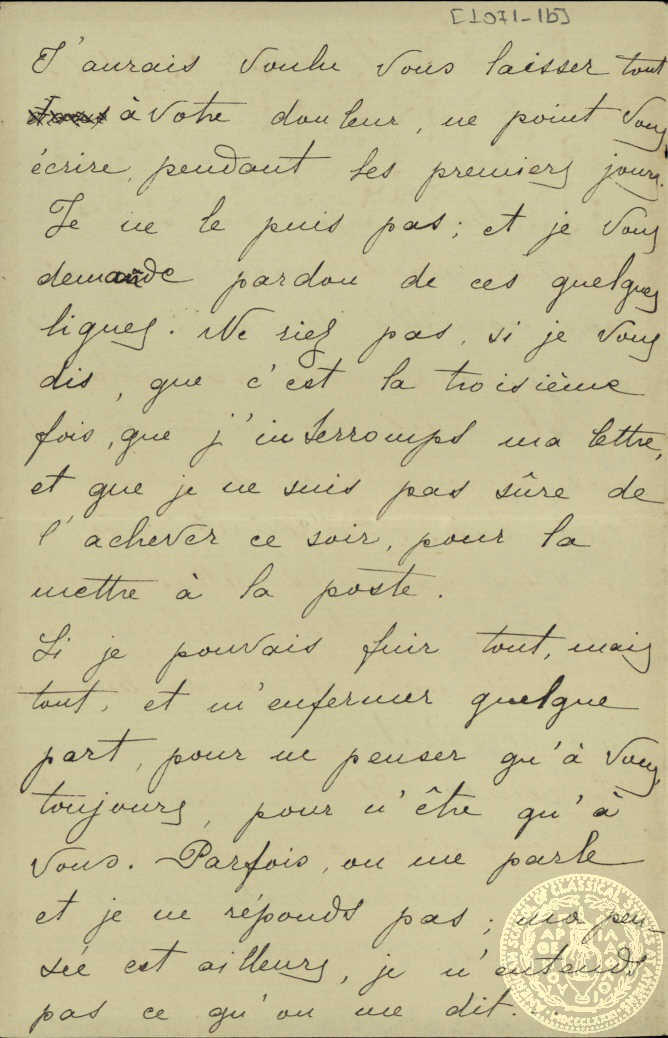 [1071-1b]
J'aurais voulu vous laisser tout
à votre douleur, ne point vous
écrire, pendant les premiers jours.
Je ne le puis pas; et je vous
demande pardon de ces quelques
lignes. Ne riez pas, si je vous
dis, que c'est la troisième
fois, que j'interromps ma lettre,
et que je ne suis pas sûre de
l'achever ce soir, pour la
mettre à la poste.
Si je pouvais fuir tout, mais
tout, et m'enfermer quelque
part, pour ne penser qu'à vous,
toujours, pour n'être qu'à
vous. Parfois, on me parle
et je ne réponds pas; ma pen-
sée est ailleurs, je n'entends
pas ce qu'on me dit...